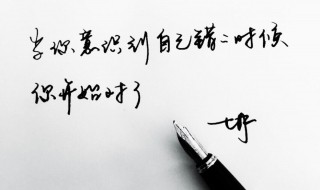 当你意识到自己错的时候
你开始对了